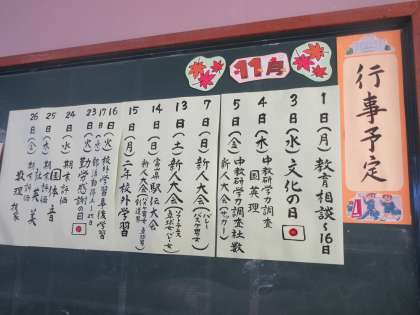 行事予定
11月
1日(月)教育相談~16日
3日(水)文化の日
4日(木)中教研学力調査
国英理
5日(金)中教研学力調査社数
新人大会(サッカー)
7日(日)新人大会(バレー
バスケ男女)
13日(土)新人大会(ソフトテニス
14日(日)
駅伝大会
新人大会
15日(月)二年校外学習
16日(火)校外学習事後学習
17日(水)
23日(火)勤労感謝の日
24日(水)期末評価
25日(木)期末評価
国体音
26日(金)期末評価
社英美
数理技家